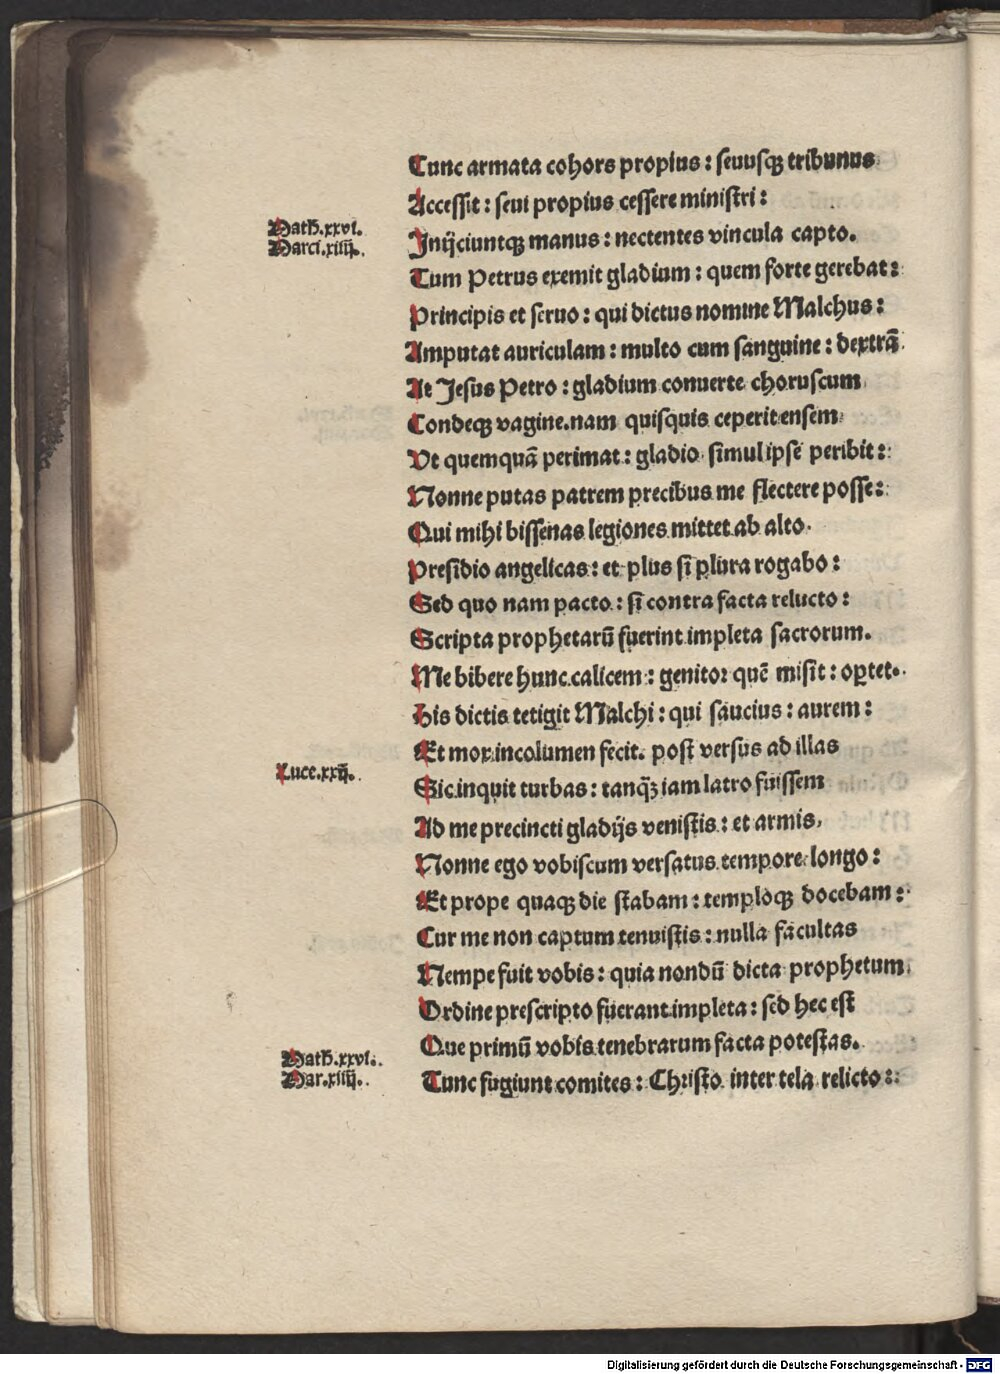 Tunc armata cohors propius : seuusqꝫ tribunus
Accessit : seui propius cessere ministri :
Math̄.xxvi.
Marci.xiiij̄.
Inijciuntqꝫ manus : nectentes vincula capto.
Tum Petrus exemit gladium : quem forte gerebat :
Principis et seruo : qui dictus nomine Malchus :
Amputat auriculam : multo cum sanguine : dextrā.
At Jesus Petro : gladium conuerte choruscum
Condeqꝫ vagine. nam quisquis ceperit ensem
Vt quemquā perimat : gladio simul ipse peribit :
Nonne putas patrem precibus me flectere posse :
Qui mihi bissenas legiones mittet ab alto.
Presidio angelicas : et plus si plura rogabo :
Sed quo nam pacto : si contra facta relucto :
Scripta prophetarū fuerint impleta sacrorum.
Me bibere hunc calicem : genitor quē misit : oꝑtet.
His dictis tetigit Malchi : qui saucius : aurem :
Et mox incolumen fecit. post versus ad illas
Luce.xxij̄.
Sic inquit turbas : tanqꝫ̄ iam latro fuissem
Ad me precincti gladijs venistis : et armis.
Nonne ego vobiscum versatus tempore longo :
Et prope quaqꝫ die stabam : temploqꝫ docebam :
Cur me non captum tenuistis : nulla facultas
Nempe fuit vobis : quia nondū dicta prophetum
Ordine prescripto fuerant impleta : sed hec est
Que primū vobis tenebrarum facta potestas.
Math̄.xxvi.
Mar.xiiij̄.
Tunc fugiunt comites : Christo inter tela relicto :
Digitalisierung gefördert durch die Deutsche Forschungsgemeinschaft - DFG